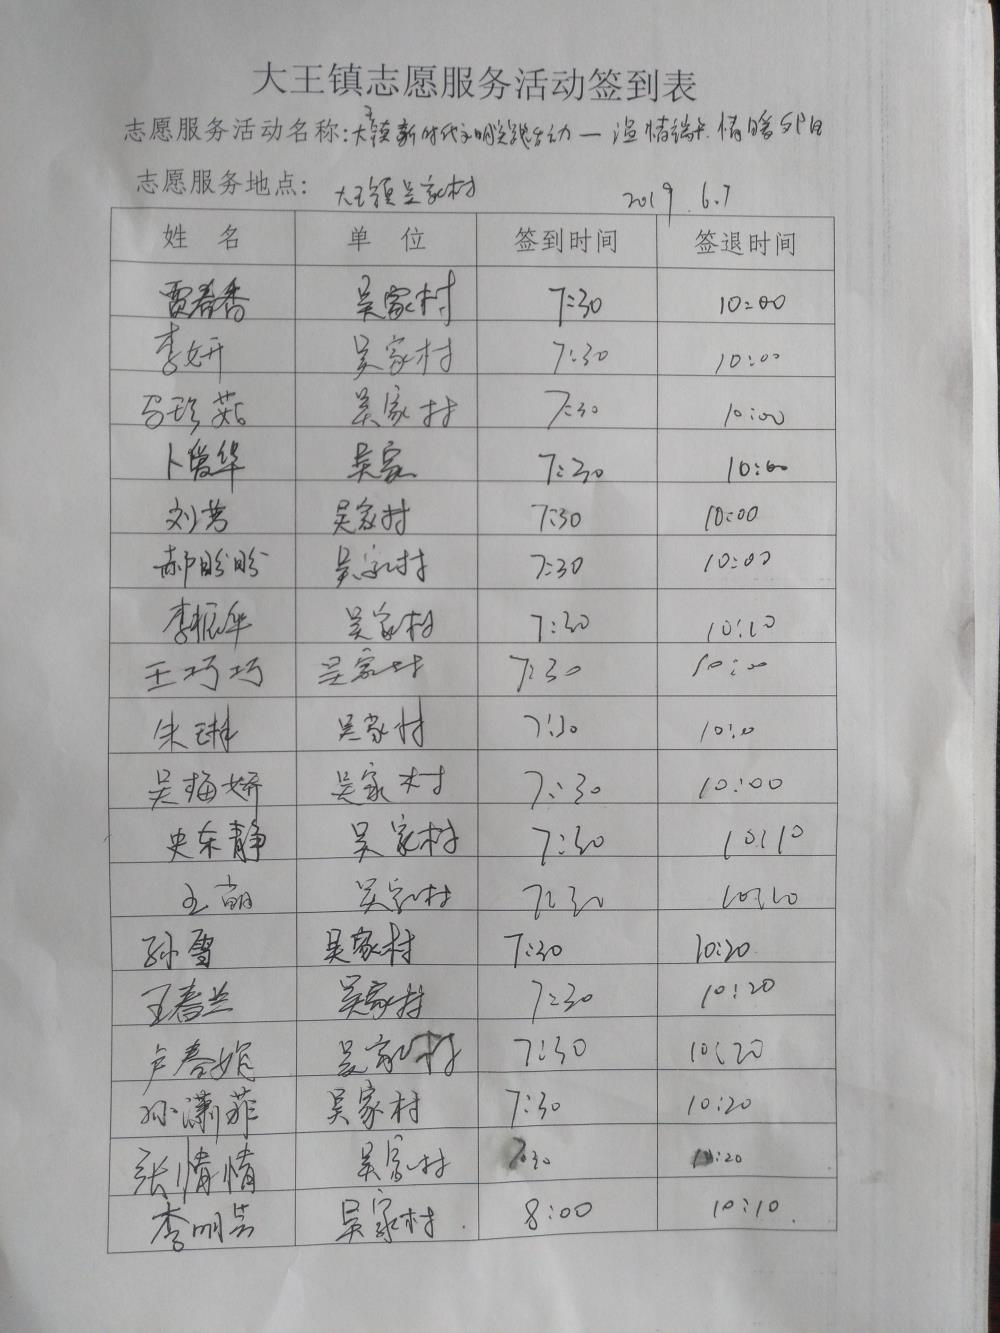 大王镇志愿服务活动签到表
志愿服务活动名称:大王镇新时代文明实践活动—温情端午 情暖夕阳
志愿服务地点: 大王镇吴家村 2019.6.7
姓 名 单 位 签到时间 签退时间
贾春香 吴家村 7:30 10:00
李妍 吴家村 7:30 10:00
马珍茹 吴家村 7:30 10:00
卜爱华 吴家 7:30 10:00
刘芳 吴家村 7:30 10:00
郝盼盼 吴家村 7:30 10:00
李振华 吴家村 7:30 10:10
王巧巧 吴家村 7:30 10:00
朱琳 吴家村 7:30 10:0
吴梅妍 吴家村 7:30 10:00
史东静 吴家村 7:30 10:10
王萌 吴家村 7:30 10:10
孙雪 吴家村 7:30 10:20
王春兰 吴家村 7:30 10:20
卢春娟 吴家村 7:30 10:20
孙潇菲 吴家村 7:30 10:20
张情情 吴家村 7:30 10:20
李明芸 吴家村. 8:00 10:10.